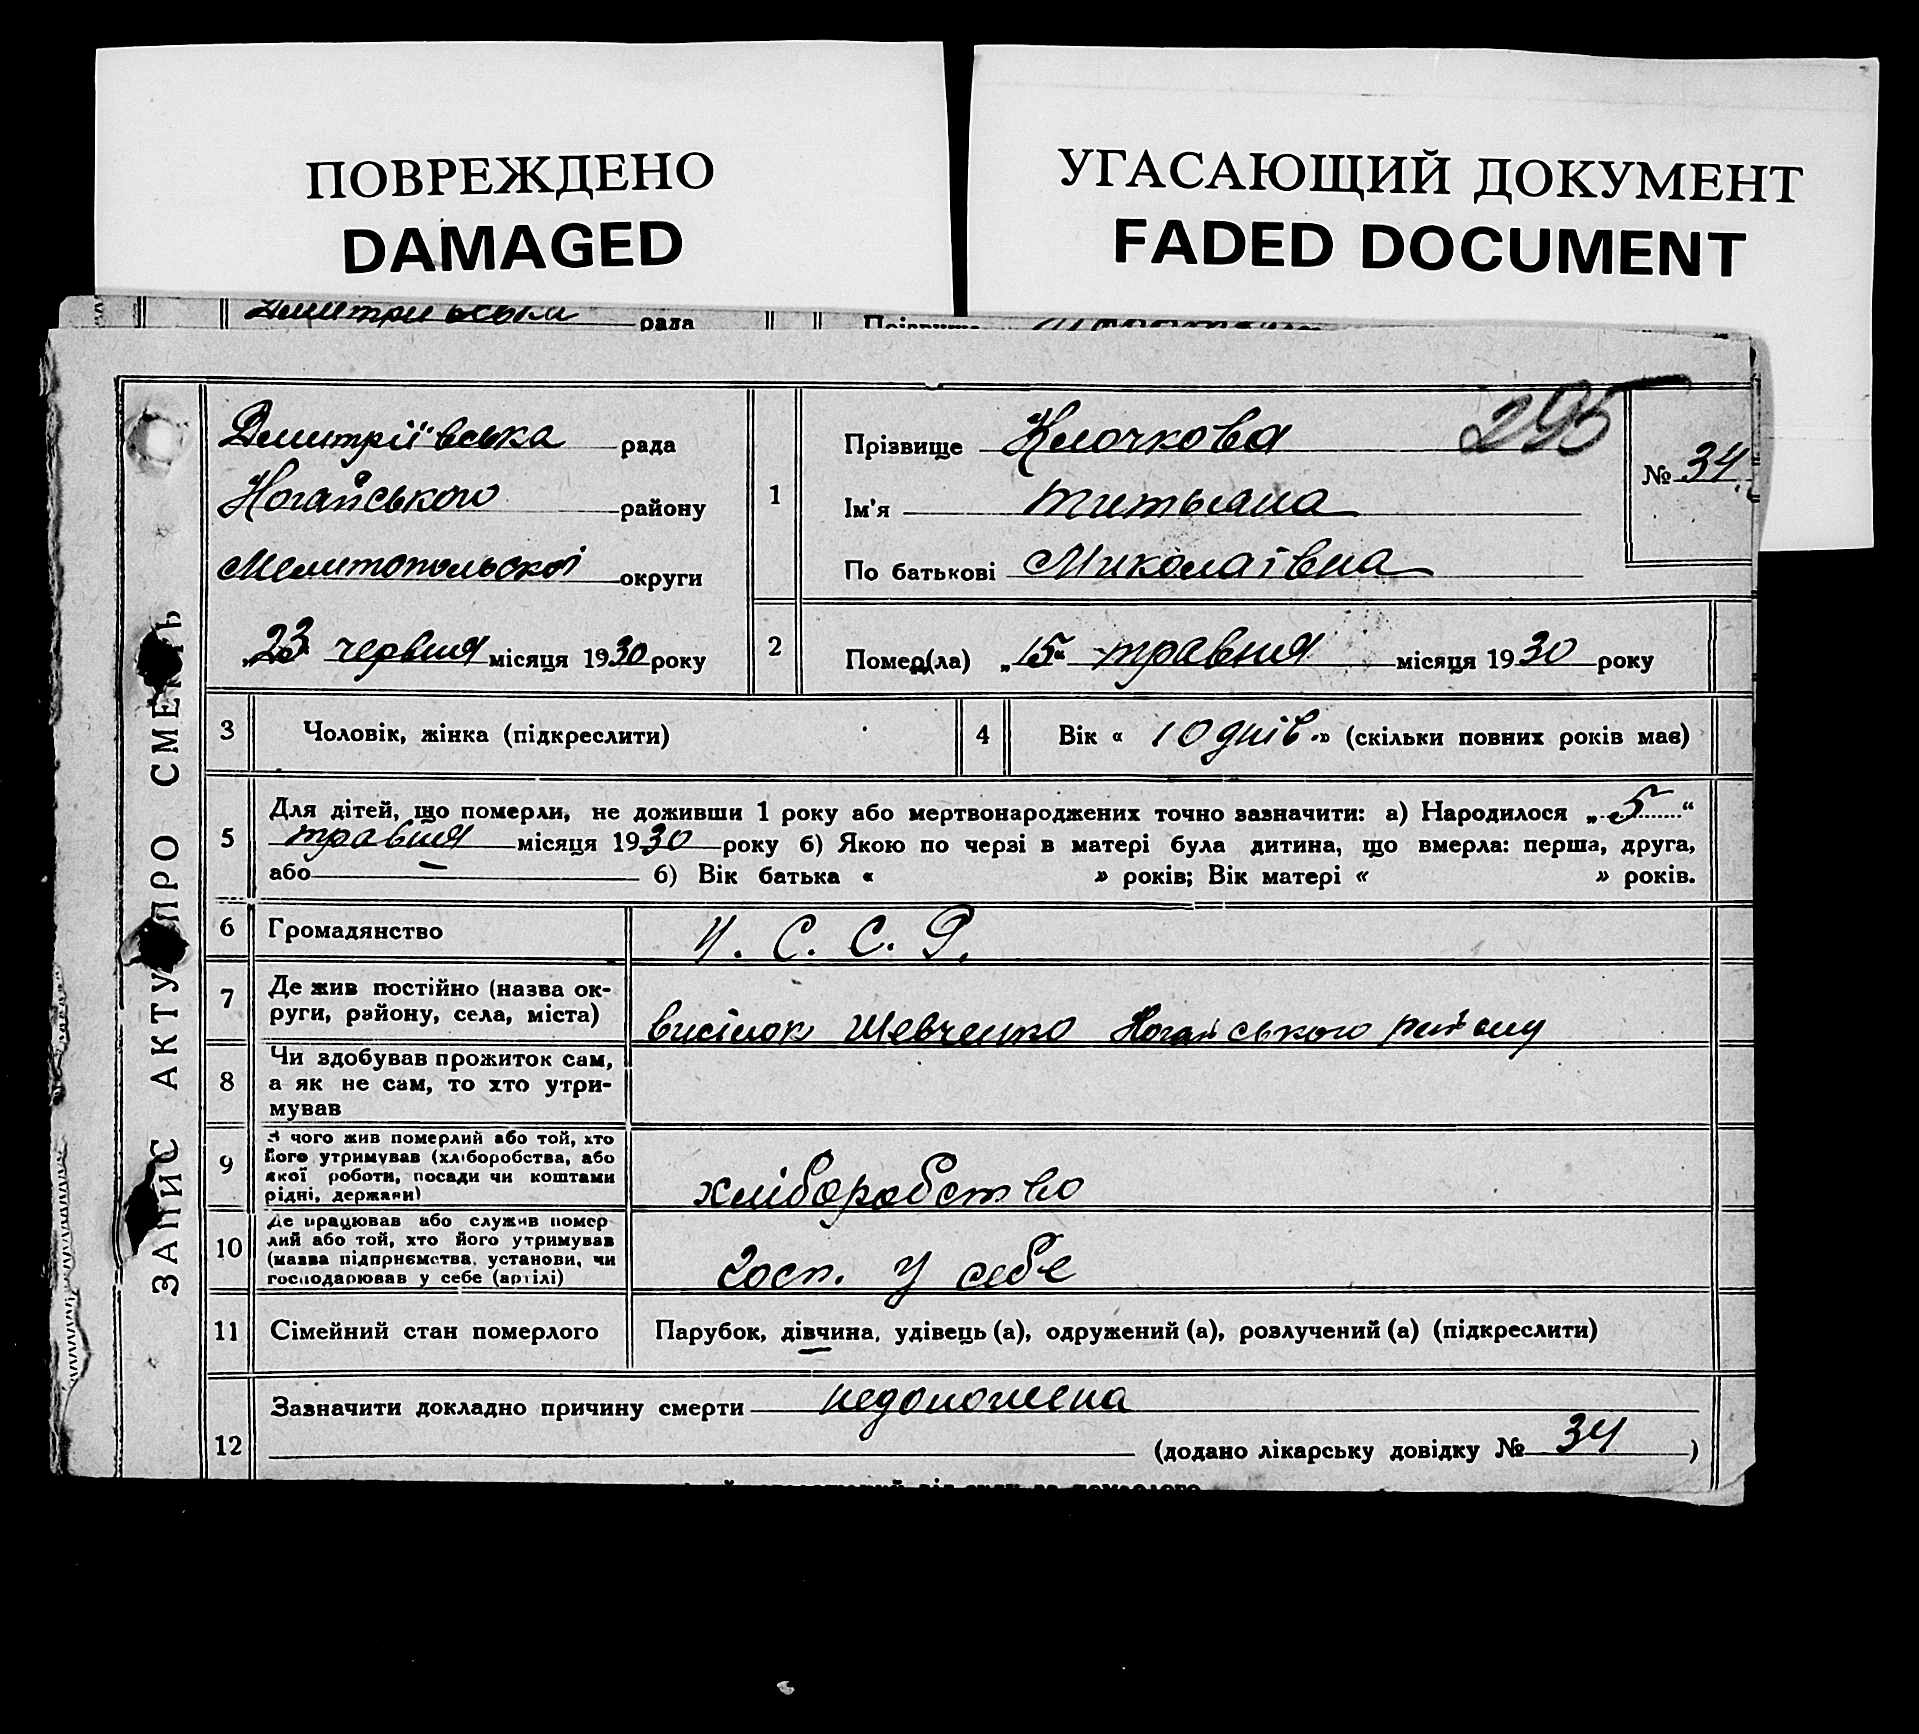 ПОВРЕЖДЕНО
DAMAGED
УГАСАЮЩИЙ ДОКУМЕНТ
FADED DOCUMENT
рада
ЗАПИС АКТУ ПРО СМЕРТЬ
Дмитріївська рада
Ногайського району
Мелитопольскої округи
„23" червня місяця 1930 року
1
Прізвище Клочкова
295
№ 34
Ім'я Титьяна
По батькові Миколаівна
2
Помер(ла) „15" травня місяця 1930 року
3 Чоловік, жінка (підкреслити)
4 Вік « 10 днів » (скільки повних років має)
5 Для дітей, що померли, не доживши 1 року або мертвонароджених точно зазначити: а) Народилося „5"
травня місяця 1930 року б) Якою по черзі в матері була дитина, що вмерла: перша, друга,
або б) Вік батька « » років; Вік матері « » років.
6 Громадянство У. С. С. Р.
7 Де жив постійно (назва ок-
руги, району, села, міста) висілок Шевченко Ногайського району
8 Чи здобував прожиток сам,
а як не сам, то хто утри-
мував
9 З чого жив померлий або той, хто
його утримував (хліборобства, або
якої роботи, посади чи коштами
рідні, держави) хліборобство
10 Де працював або служив помер
лий або той, хто його утримував
(назва підприємства, установи, чи
господарював у себе (артілі) госп. у себе
11 Сімейний стан померлого Парубок, дівчина, удівець (а), одружений (а), розлучений (а) (підкреслити)
12 Зазначити докладно причину смерти недоношена
(додано лікарську довідку № 34 )